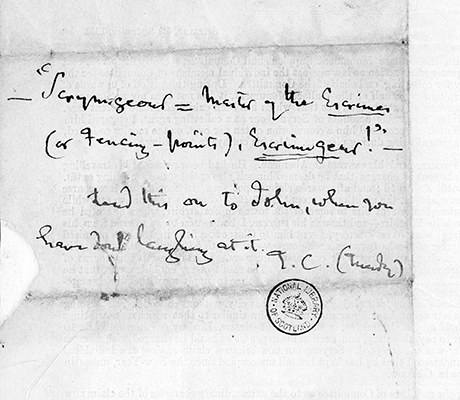 — "Scrymgeour = Master of the Escrimes
(or Fencing-points), Escrimgeour!" —
Send this on to John, when you
have done laughing at it.
T. C. (Tuesday)
NATIONAL LIBRARY
OF SCOTLAND